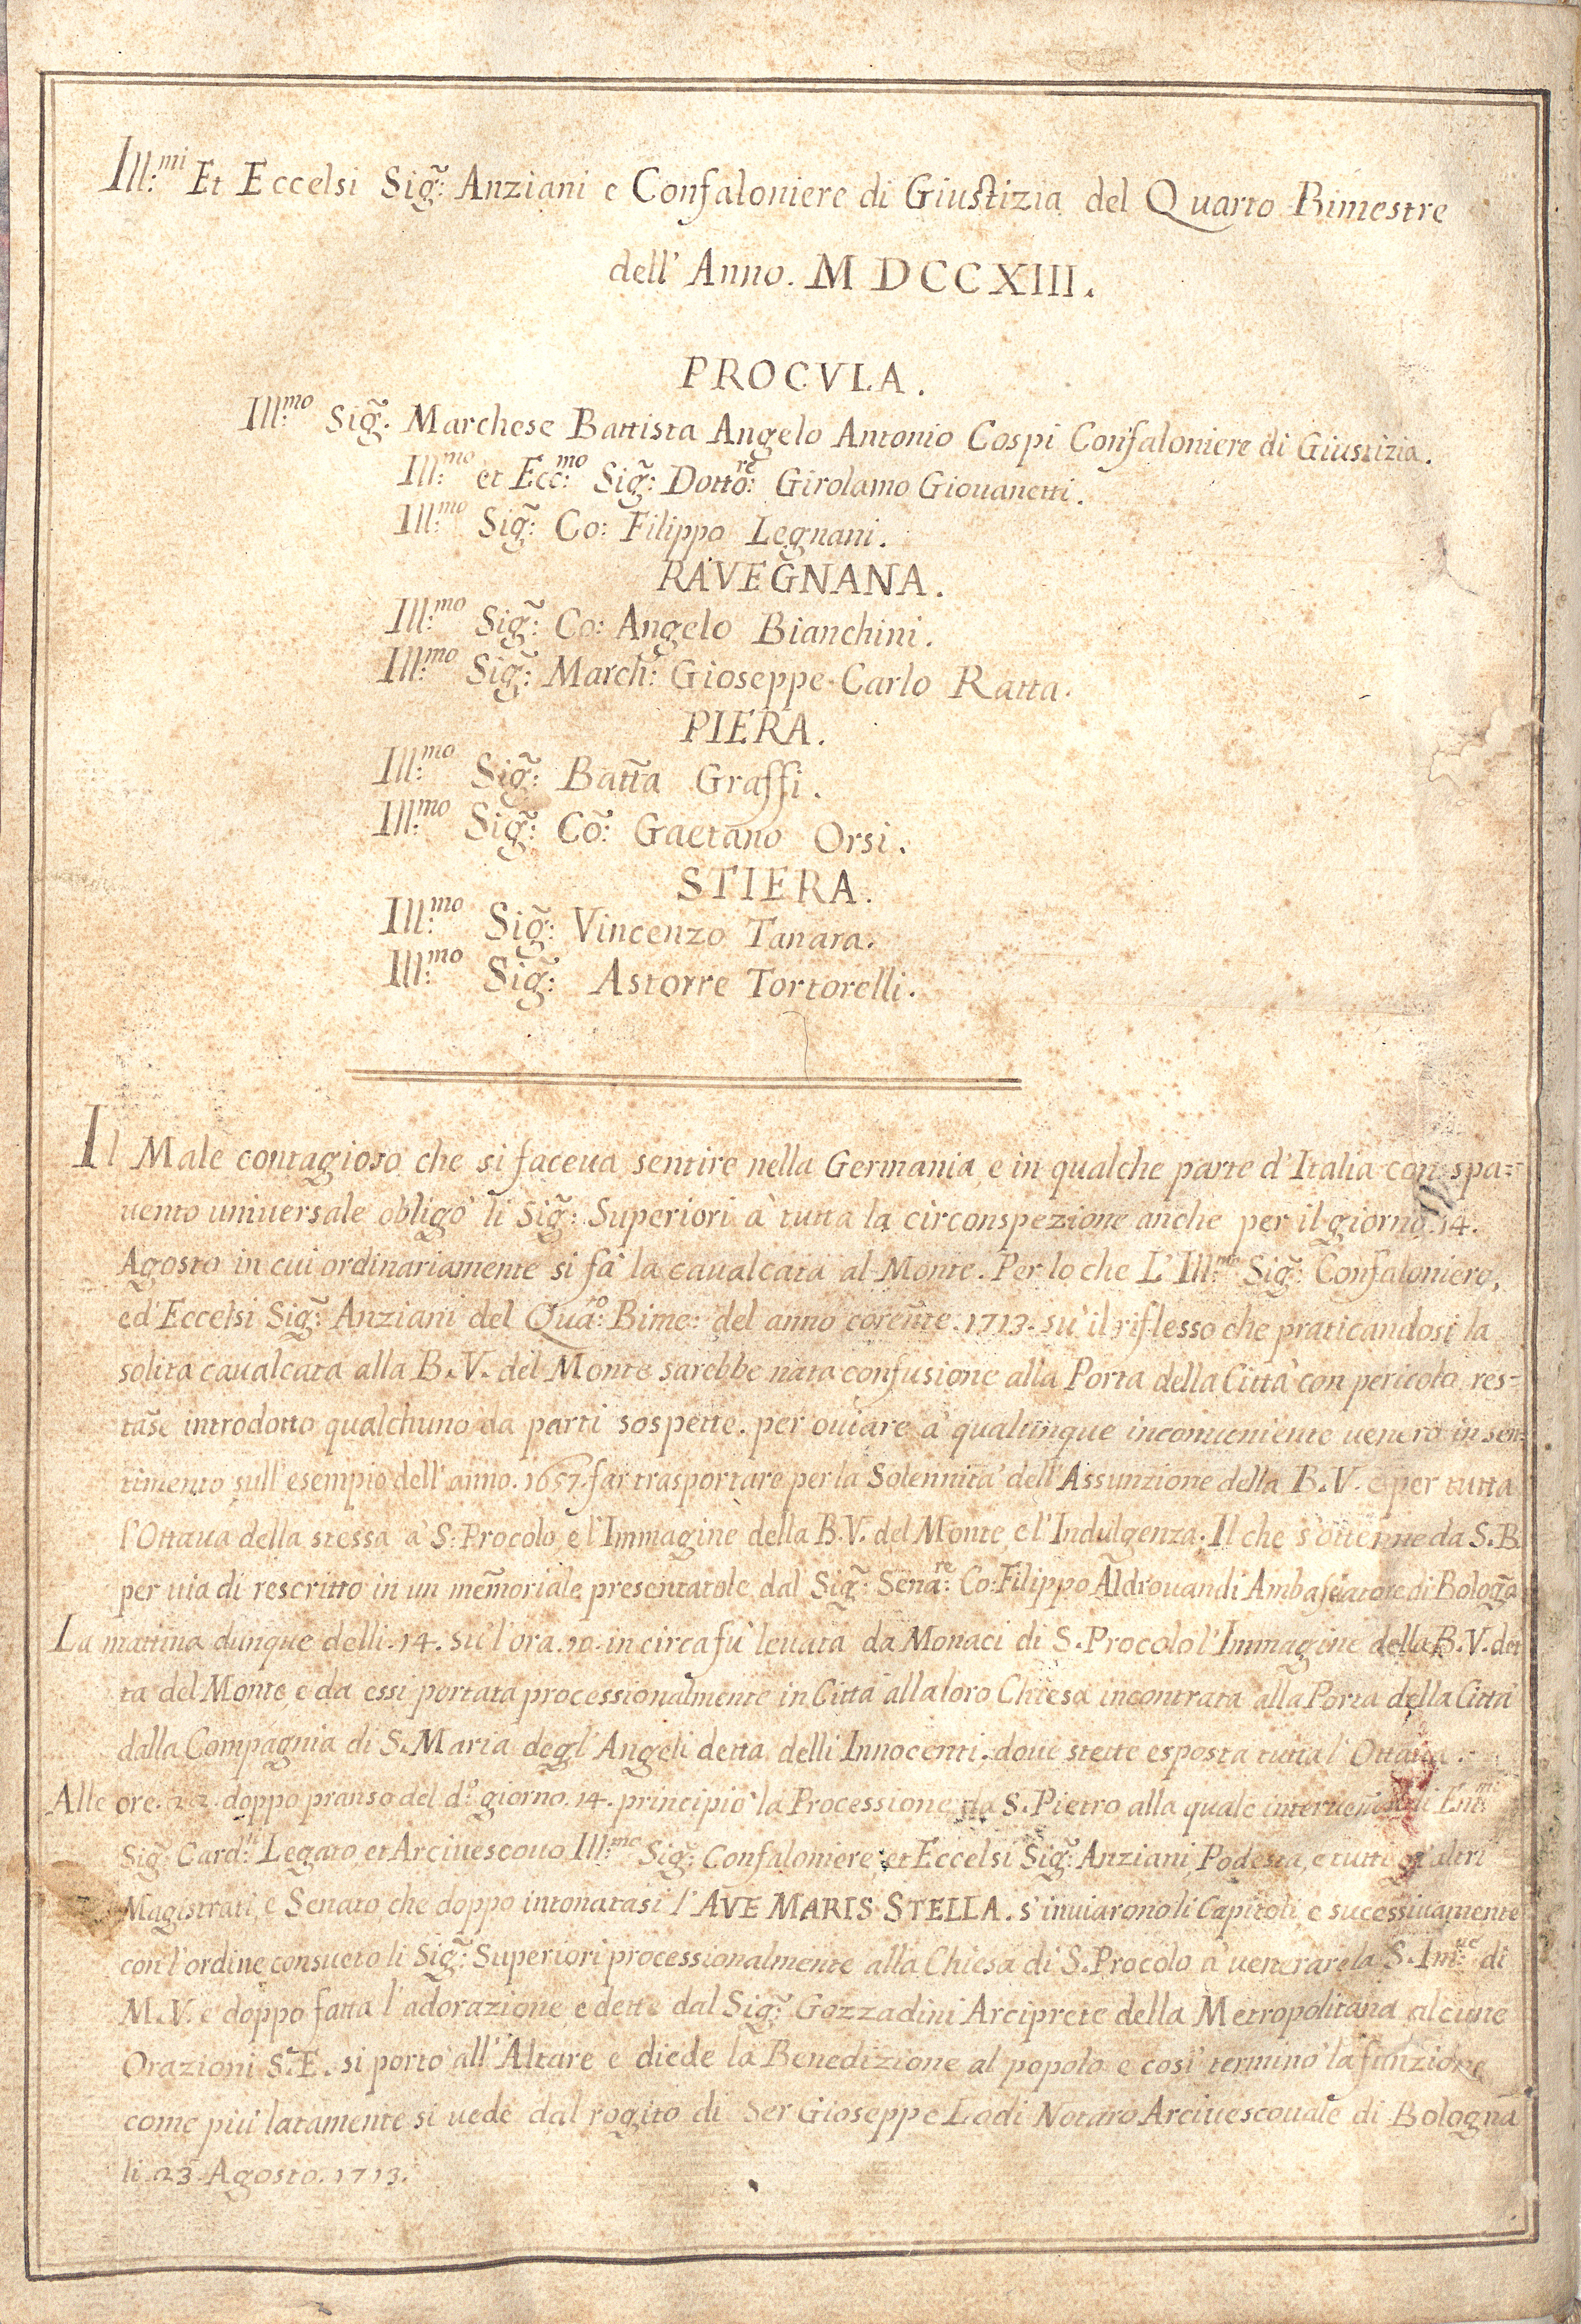 Ill:mi Et Eccelsi Sig̃: Anziani e Confaloniere di Giustizia del Quarto Bimestre
dell' Anno. MDCCXIII.
PROCVLA.
Ill:mo Sig̃. Marchese Battista Angelo Antonio Cospi Confaloniere di Giustizia.
Ill:mo et Ecc:mo Sig̃: Dotto:re Girolamo Giouanetti.
Ill:mo Sig̃: Co: Filippo Legnani.
RAVEGNANA.
Ill:mo Sig̃: Co: Angelo Bianchini.
Ill:mo Sig̃: March: Gioseppe Carlo Ratta.
PIERA.
Ill:mo Sig̃: Batt̃a Graffi.
Ill:mo Sig̃: Cõ: Gaetano Orsi.
STIERA.
Ill:mo Sig̃: Vincenzo Tanara.
Ill:mo Sig̃: Astorre Tortorelli.
Il Male contagioso che si faceua sentire nella Germania, e in qualche parte d'Italia con spa=
uento uniuersale obligò li Sig̃: Superiori à tutta la circonspezione anche per il giorno. 14.
Agosto in cui ordinariamente si fà la caualcata al Monte. Per lo che L'Ill:mo Sig̃: Confaloniere,
ed' Eccelsi Sig̃: Anziani del Qua:to Bime: del anno coreñte. 1713. sù il riflesso che praticandosi la
solita caualcata alla B.V. del Monte sarebbe nata confusione alla Porta della Città con pericolo, res=
tas̃e introdotto qualchuno da parti sospette. per ouiare à qualunque inconueniente uenero in sen=
timento sull' esempio dell' anno. 1657. far trasportare per la Solennità dell' Assunzione della B.V. e per tutta
l'Ottaua della stessa à S. Procolo, e l'Immagine della B.V. del Monte, e l'Indulgenza. Il che s'ottenne da S.B.
per uia di rescritto in un mem̃oriale presentatole dal Sig̃: Sena:re Co: Filippo Aldrouandi Ambasciatore di Bolog̃a
La mattina dunque delli. 14. sù l'ora. 10. in circa fù leuata da Monaci di S. Procolo l'Immagine della B.V. det
ta del Monte, e da essi portata processionalmente in Città alla loro Chiesa incontrata alla Porta della Città
dalla Compagnia di S. Maria degl' Angeli detta delli Innocenti, doue stette esposta tutta l'Ottaua.
Alle ore. 22. doppo pranso del d:o giorno. 14. principiò la Processione da S. Pietro alla quale interuen̄ero li Em:mi
Sig̃: Card:li Legato, et Arciuescouo Ill:mo Sig̃: Confaloniere, et Eccelsi Sig̃: Anziani, Podestà, e tutti gl'altri
Magistrati, e Senato, che doppo intonatasi l'AVE MARIS STELLA. s'inuiarono li Capitoli, e sucessiuamente
con l'ordine consueto li Sig̃: Superiori processionalmente alla Chiesa di S. Procolo à uenerare la S. Im:ne di
M.V. e doppo fatta l'adorazione, e dette dal Sig̃: Gozzadini Arciprete della Metropolitana alcune
Orazioni S. E. si portò all' Altare e diede la Benedizione al popolo e così terminò la funzione
come più latamente si uede dal rogito di Ser Gioseppe Lodi Notaro Arciuescouale di Bologna
li. 23. Agosto. 1713.